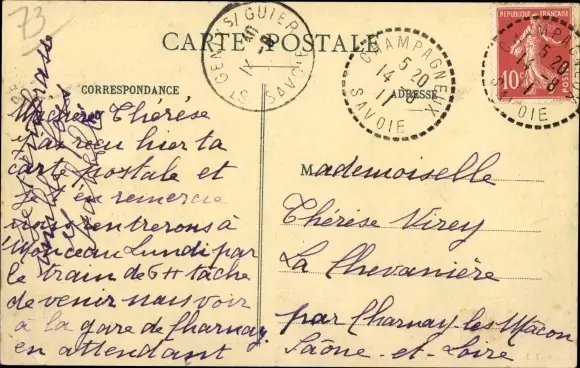 73
CARTE POSTALE
ST GENIX S/ GUIERS
SAVOIE
CHAMPAGNEUX
5 20
14 - 8
11
SAVOIE
RÉPUBLIQUE FRANÇAISE
10
CHAMPAGNEUX
5 20
14 - 8
11
SAVOIE
CORRESPONDANCE
ADRESSE
Ma chère Thérèse
J'ai reçu hier ta
carte postale et
je t'en remercie
nous rentrerons à
Monceau Lundi par
le train de 6H tâche
de venir nous voir
à la gare de Charnay
en attendant
Mademoiselle
Thérèse Virey
La Chevanière
par Charnay-les-Mâcon
Saône-et-Loire